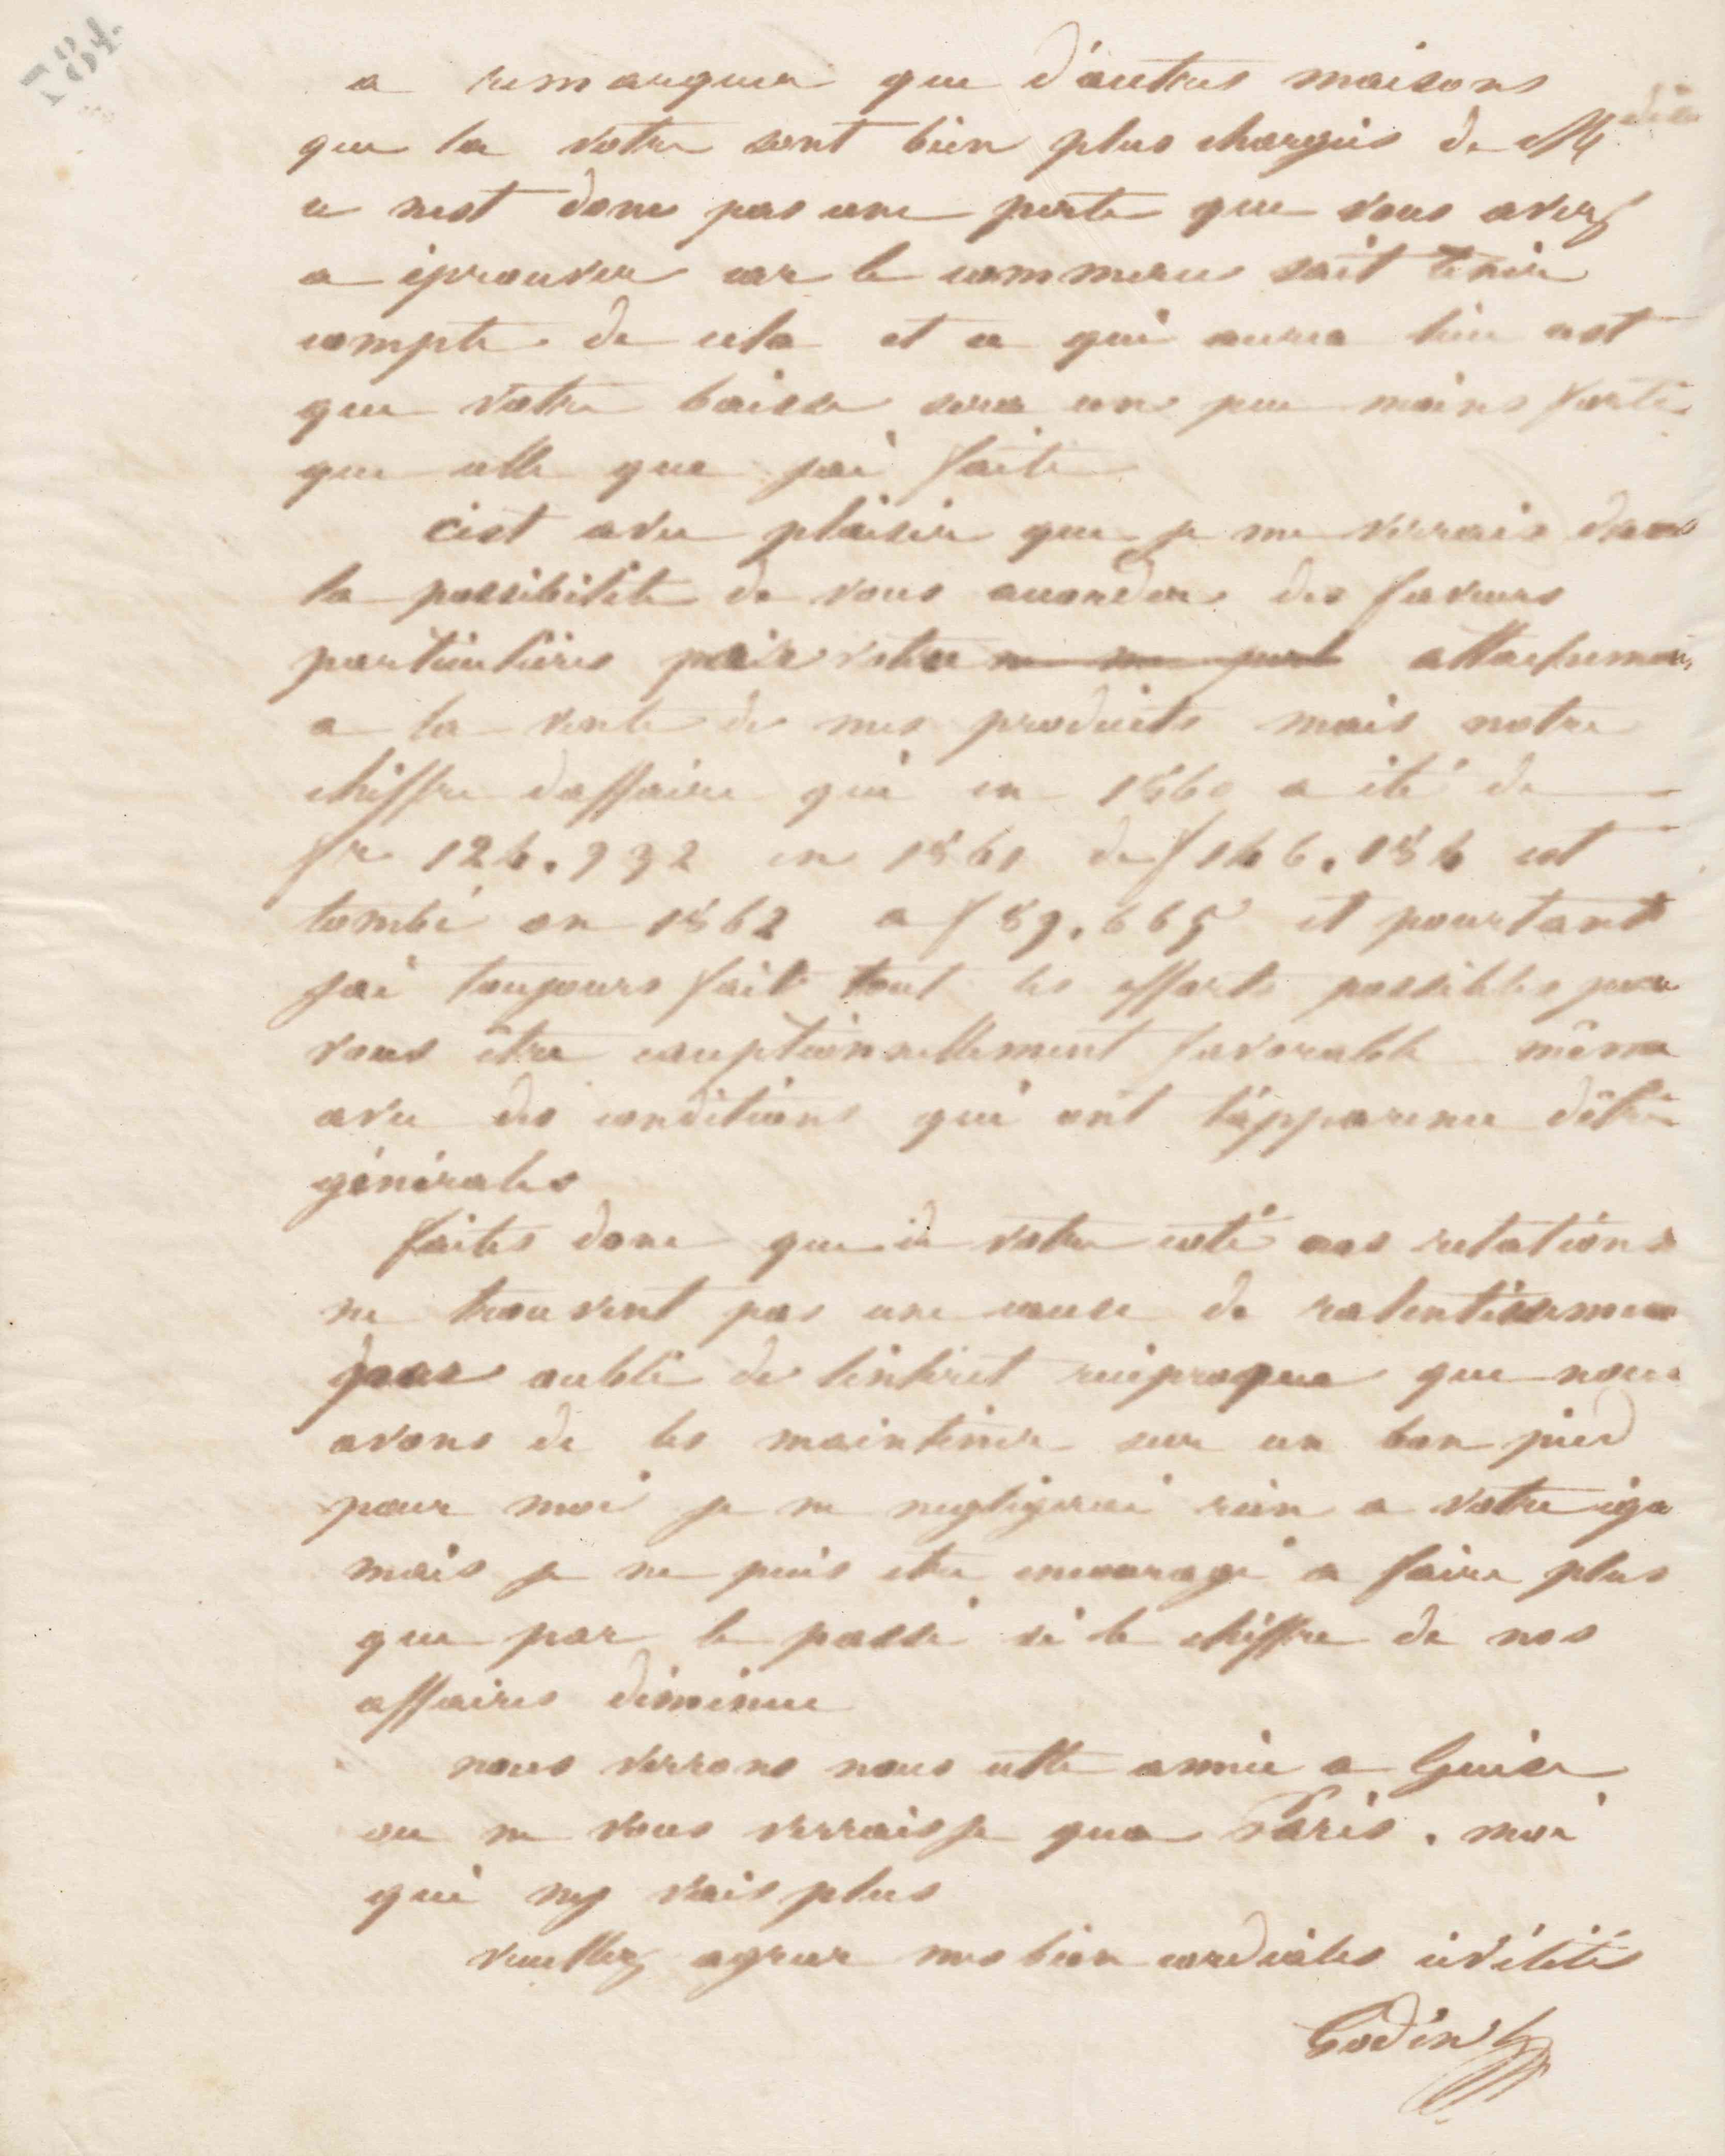 784
a remarquer que d'autres maisons
que la votre sont bien plus chargés de Mdises
ce nest donc pas une perte que vous avez
a éprouver car le commerce sait tenir
compte de cela et ce qui aura lieu cest
que votre baisse sera un peu moins forte
que celle que jai faite
cést avec plaisir que je me verrais dans
la possibilité de vous accorder des faveurs
particulières pour votre attachement
a la vente de mes produits mais notre
chiffre daffaire qui en 1860 a été de
fr 124.932 en 1861 de f 146.184 est
tombé en 1862 a f 89.665 et pourtant
jai toujours fait tout les efforts possibles pour
vous être exceptionnellement favorable même
avec des conditions qui ont l'apparence dêtre
générales
faites donc que de votre coté nos relations
ne trouvent pas une cause de ralentissement
par oubli de lintéret réciproque que nous
avons de les maintenir sur un bon pied
pour moi je ne negligerai rien a votre éga
mais je ne puis etre encouragé a faire plus
que par le passé si le chiffre de nos
affaires diminue
nous verrons nous cette année a Guise
ou ne vous verraisje qua Paris. moi
qui ny vais plus
veuillez agréer mes bien cordiales civilités
Godin